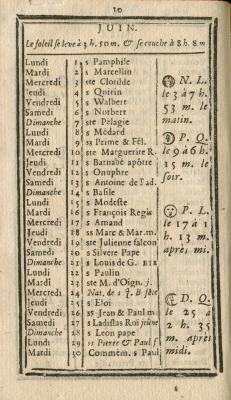 10
JUIN.
Le soleil se leve à 3 h. 50 m. & se couche à 8 h. 8 m
Lundi 1 s Pamphile
Mardi 2 s Marcellin
Mercredi 3 ste Clotilde
Jeudi 4 s Quirin
Vendredi 5 s Walbert
Samedi 6 s Norbert
Dimanche 7 ste Pelagie
Lundi 8 s Médard
Mardi 9 ss Prime & Fél.
Mercredi 10 ste Marguerite R.
Jeudi 11 s Barnabé apôtre
Vendredi 12 s Onuphre
Samedi 13 s Antoine de Pad.
Dimanche 14 s Basile
Lundi 15 s Modeste
Mardi 16 s François Regis
Mercredi 17 s Amand
Jeudi 18 ss Marc & Mar. m.
Vendredi 19 ste Julienne falcon
Samedi 20 s Silvere Pape
Dimanche 21 s Louis de G.
Lundi 22 s Paulin
Mardi 23 ste M. d'Oign. j.
Mercredi 24 Nat. de s J. B
Jeudi 25 s Eloi
Vendredi 26 ss Jean & Paul m.
Samedi 27 s Ladislas Roi jeûne
Dimanche 28 s Leon pape
Lundi 29 ss Pierre & Paul
Mardi 30 Commém. s Paul
N. L.
le 3 à 7 h.
53 m. le
matin.
P. Q.
le 9 à 6 h.
15 m. le
soir.
P. L.
le 17 à 1
h. 13 m.
après mi.
D. Q.
le 25 à
2 h. 35
m. après
midi.